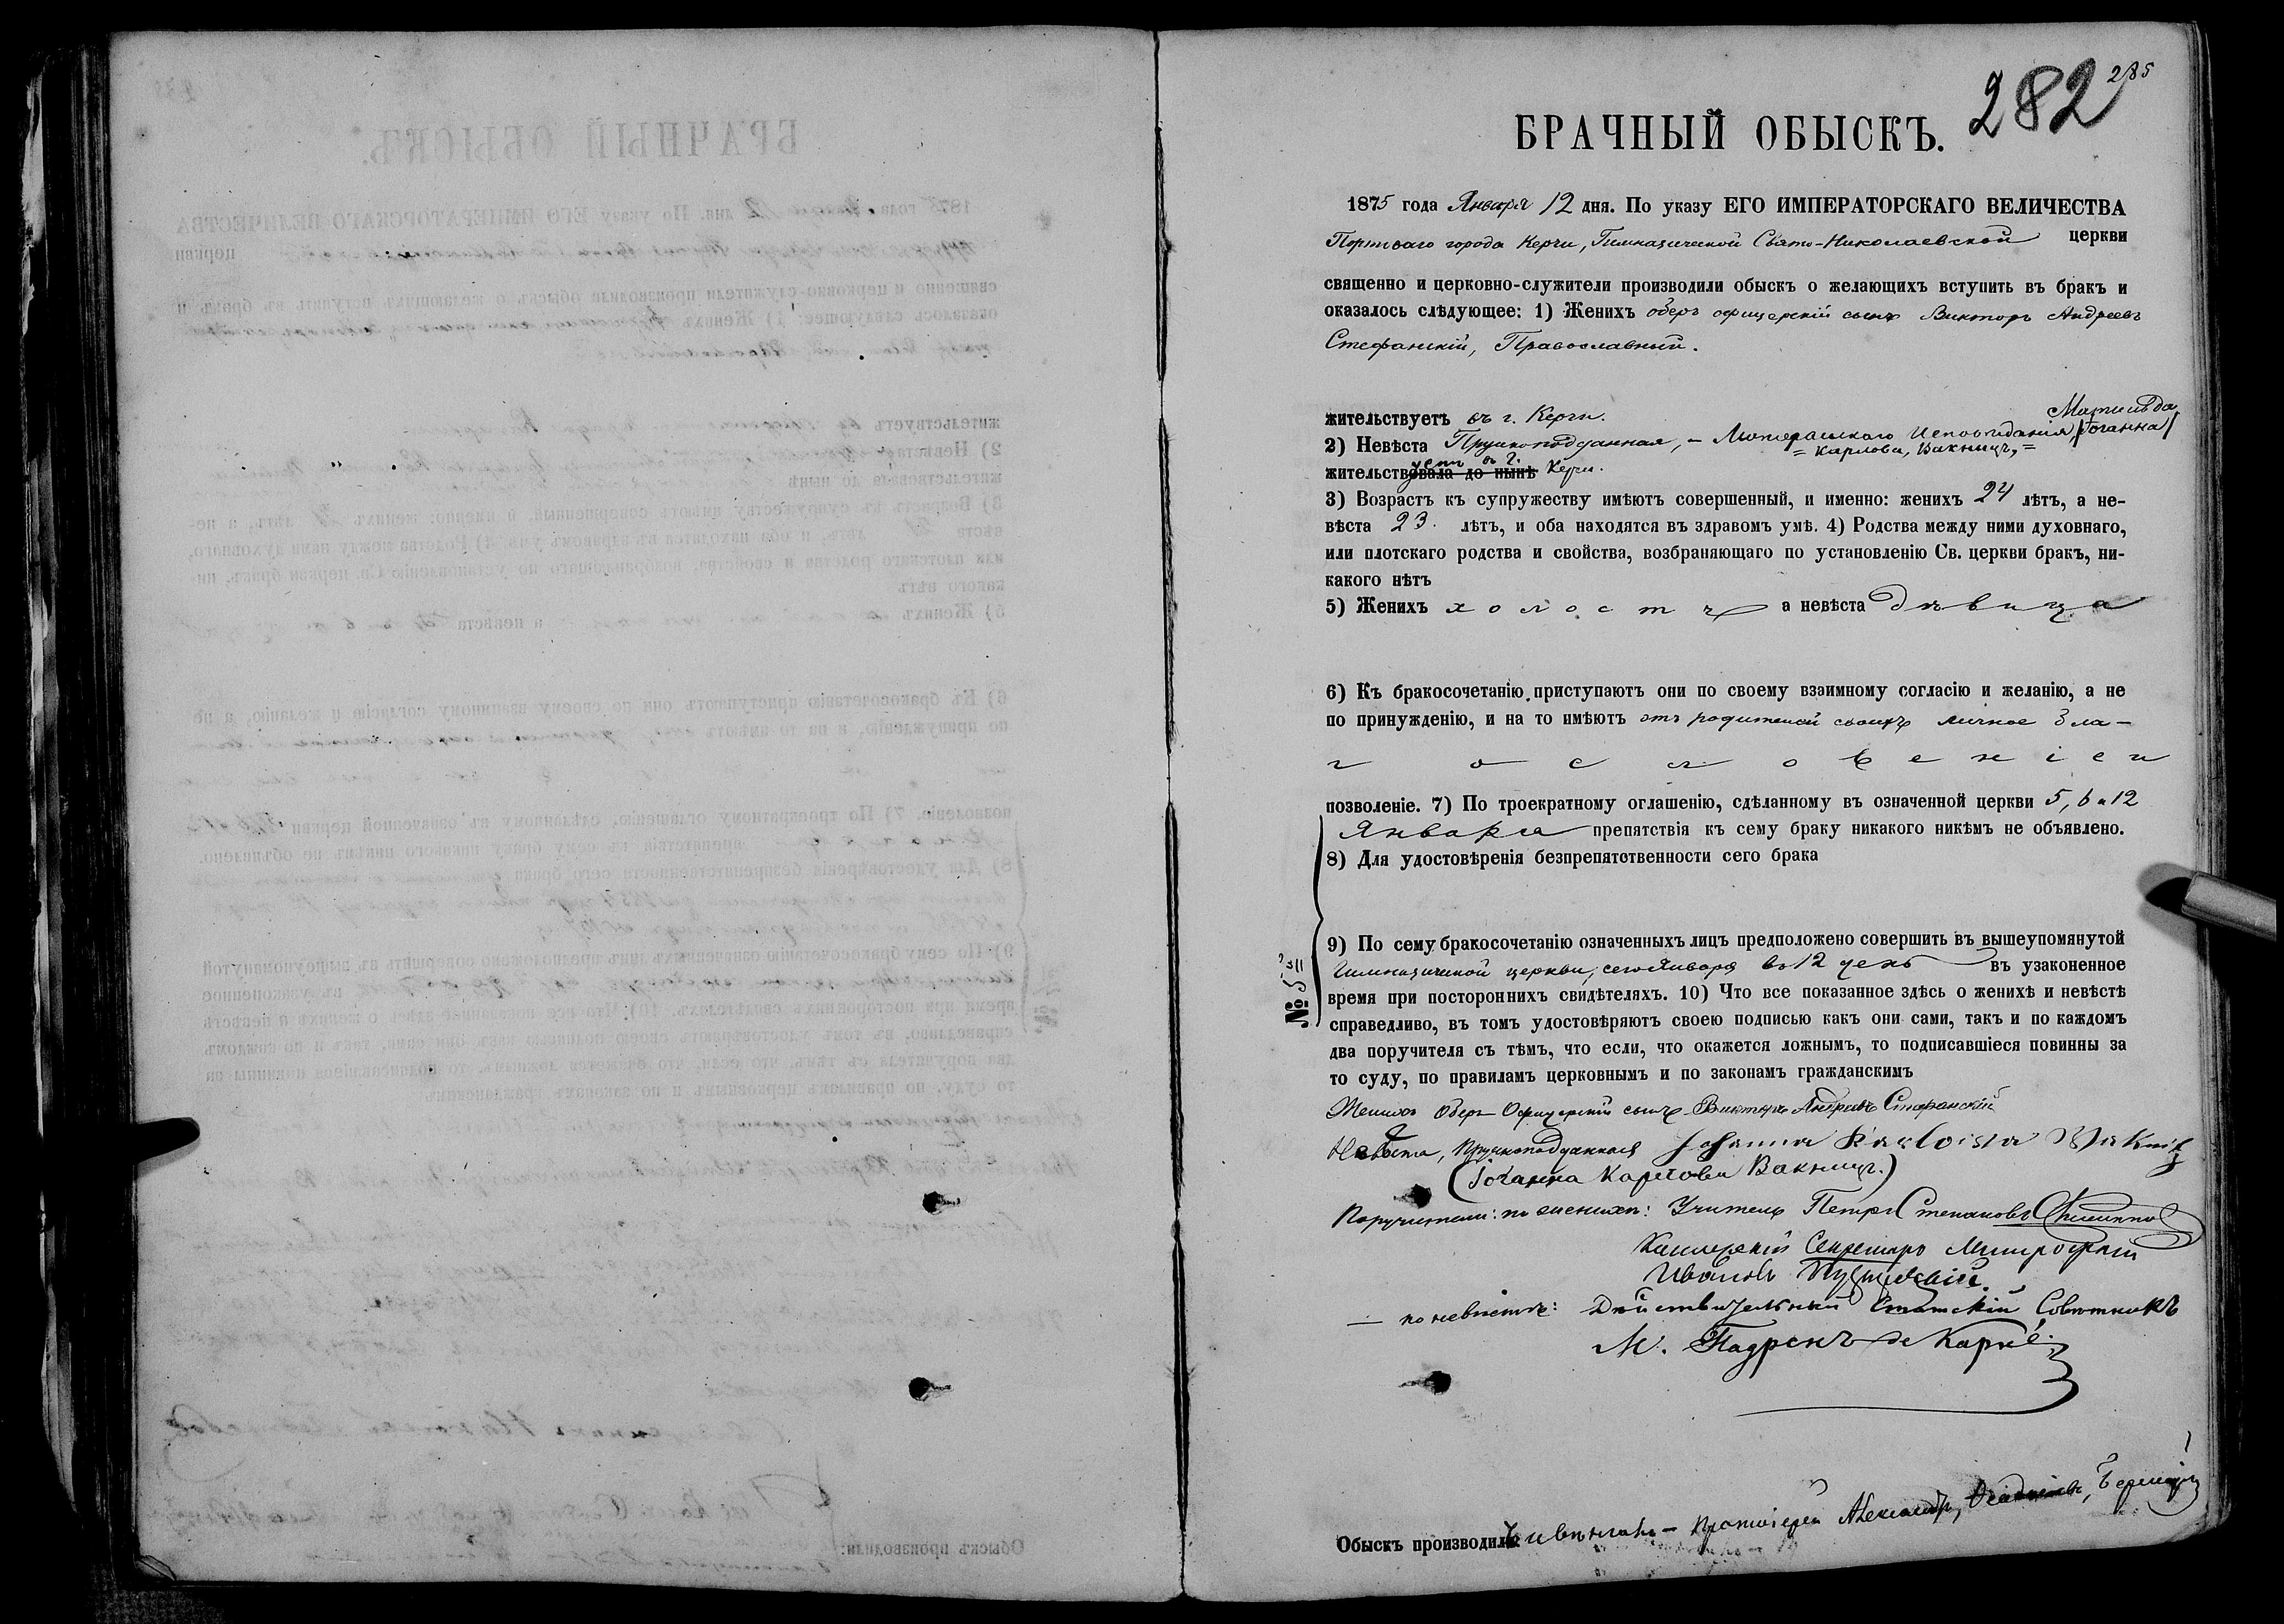 282 285
БРАЧНЫЙ ОБЫСКЪ.
1875 года Января 12 дня. По указу ЕГО ИМПЕРАТОРСКАГО ВЕЛИЧЕСТВА
Портоваго города Керчи, Гимназической Свято-Николаевской церкви
священно и церковно-служители производили обыскъ о желающихъ вступить въ бракъ и
оказалось слѣдующее: 1) Женихъ оберъ офицерскій сынъ Викторъ Андреевъ
Стефанскій, Православный.
жительствуетъ въ г. Керчи.
Матильда
2) Невѣста Прусскоподданная, – Лютеранскаго Исповѣданія /Іоганна/
= Карлова, Вакницъ, =
уетъ въ г.
жительствовала до нынѣ Керчи.
3) Возрастъ къ супружеству имѣютъ совершенный, и именно: женихъ 24 лѣтъ, а не-
вѣста 23. лѣтъ, и оба находятся въ здравомъ умѣ. 4) Родства между ними духовнаго,
или плотскаго родства и свойства, возбраняющаго по установленію Св. церкви бракъ, ни-
какого нѣтъ
5) Женихъ холостъ а невѣста дѣвица
6) Къ бракосочетанію приступаютъ они по своему взаимному согласію и желанію, а не
по принужденію, и на то имѣютъ отъ родителей своихъ личное бла-
гословеніеи
позволеніе. 7) По троекратному оглашенію, сдѣланному въ означенной церкви 5, 6 и 12
Января препятствія къ сему браку никакого никѣмъ не объявлено.
8) Для удостовѣренія безпрепятственности сего брака
9) По сему бракосочетанію означенныхъ лицъ предположено совершить въ вышеупомянутой
Гимназической церкви, сего Января въ 12 день въ узаконенное
№
время при постороннихъ свидѣтеляхъ. 10) Что все показанное здѣсь о женихѣ и невѣстѣ
справедливо, въ томъ удостовѣряютъ своею подписью какъ они сами, такъ и по каждомъ
два поручителя съ тѣмъ, что если, что окажется ложнымъ, то подписавшіеся повинны за
то суду, по правиламъ церковнымъ и по законамъ гражданскимъ
Женихъ Оберъ Офицерскій сынъ Викторъ Андреевъ Стефанскій
Невѣста, Прусскоподданная Johanna Karlowa Waknitz
(Іоганна Карлова Вакницъ.)
Поручители: по женихѣ: Учитель Петръ Степановъ
Коллежскій Секретарь Митрофанъ
Ивановъ
– по невѣстѣ: Дѣйствительный Статскій Совѣтникъ
М. Падренъ де Карне.
Обыскъ производилъ Протоіерей Александръ